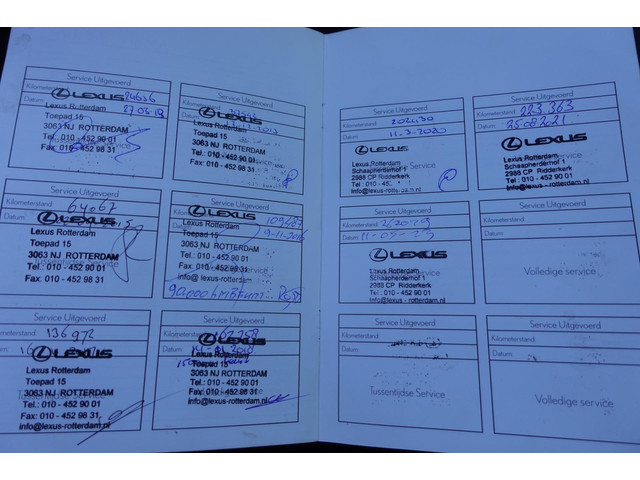 Service Uitgevoerd
Kilometerstand: 24636
LEXUS
Datum: 27 03 12
Lexus Rotterdam
Toepad 15
3063 NJ ROTTERDAM
Tel.: 010 - 452 90 01
Fax: 010 - 452 98 31
Service Uitgevoerd
LEXUS
Datum:
Lexus Rotterdam
Toepad 15
3063 NJ ROTTERDAM
Tel.: 010 - 452 90 01
Fax: 010 - 452 98 31
Service Uitgevoerd
64067
LEXUS
Lexus Rotterdam
Toepad 15
3063 NJ ROTTERDAM
Tel.: 010 - 452 90 01
Fax: 010 - 452 98 31
Tussentijdse Service
Service Uitgevoerd
LEXUS
109487
Datum: 9-11-2016
Lexus Rotterdam
Toepad 15
3063 NJ ROTTERDAM
Tel.: 010 - 452 90 01
Fax: 010 - 452 98 31
info@lexus-rotterdam.nl
Service Uitgevoerd
Kilometerstand: 136972
LEXUS
Datum: 16
Lexus Rotterdam
Toepad 15
3063 NJ ROTTERDAM
Tel.: 010 - 452 90 01
Fax: 010 - 452 98 31
info@lexus-rotterdam.nl
Service Uitgevoerd
Kilometerstand: 162258
LEXUS
Datum:
Lexus Rotterdam
Toepad 15
3063 NJ ROTTERDAM
Tel.: 010 - 452 90 01
Fax: 010 - 452 98 31
info@lexus-rotterdam.nl
Service Uitgevoerd
Kilometerstand:
Datum: 11-3-2020
LEXUS
Lexus Rotterdam
Schaapherderhof 1
2988 CP Ridderkerk
Service Uitgevoerd
Kilometerstand: 223.363
Datum: 25082021
LEXUS
Lexus Rotterdam
Schaapherderhof 1
2988 CP Ridderkerk
Tel.: 010 - 452 90 01
info@lexus-rotterdam.nl
Service Uitgevoerd
Kilometerstand:
Datum: 11-05-23
LEXUS
Lexus Rotterdam
Schaapherderhof 1
2988 CP Ridderkerk
Tel.: 010 - 452 90 01
info@lexus-rotterdam.nl
Service Uitgevoerd
Kilometerstand:
Datum:
Volledige service
Service Uitgevoerd
Kilometerstand:
Datum:
Tussentijdse Service
Service Uitgevoerd
Kilometerstand:
Datum:
Volledige service